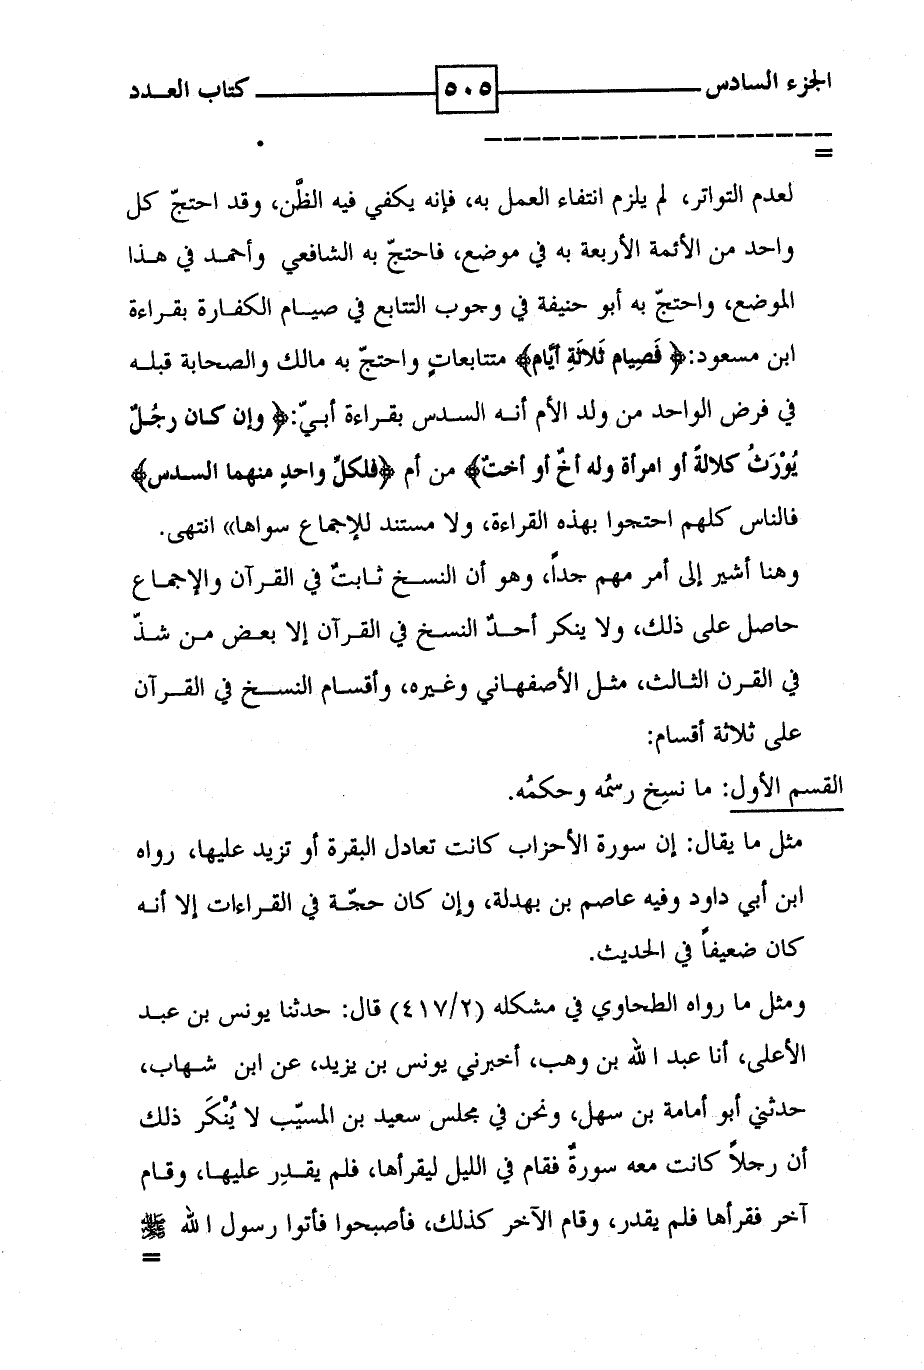 الجزء السادس ٥٠٥ كتاب العـدد
=
لعدم التواتر، لم يلزم انتفاء العمل به، فإنه يكفي فيه الظَّن، وقد احتجّ كل
واحد من الأئمة الأربعة به في موضع، فاحتجّ به الشافعي وأحمد في هذا
الموضع، واحتجّ به أبو حنيفة في وجوب التتابع في صيام الكفارة بقراءة
ابن مسعود:﴿ فَصِيام ثَلاثَةِ أيَّام﴾ متتابعاتٍ واحتجّ به مالك والصحابة قبله
في فرض الواحد من ولد الأم أنه السدس بقراءة أبيّ:﴿ وإن كان رجُلٌ
يُوْرَثُ كلالةً أو امرأة وله أخٌ أو أختٌ﴾ من أم ﴿فلكلِّ واحدٍ منهما السدس﴾
فالناس كلهم احتجوا بهذه القراءة، ولا مستند للإجماع سواها» انتهى.
وهنا أشير إلى أمر مهم جداً، وهو أن النسخ ثابتٌ في القرآن والإجماع
حاصل على ذلك، ولا ينكر أحدٌ النسخ في القرآن إلا بعض من شذّ
في القرن الثالث، مثل الأصفهاني وغيره، وأقسام النسخ في القرآن
على ثلاثة أقسام:
القسم الأول: ما نسِخ رسمُه وحكمُه.
مثل ما يقال: إن سورة الأحزاب كانت تعادل البقرة أو تزيد عليها، رواه
ابن أبي داود وفيه عاصم بن بهدلة، وإن كان حجّة في القراءات إلا أنه
كان ضعيفاً في الحديث.
ومثل ما رواه الطحاوي في مشكله (٤١٧/٢) قال: حدثنا يونس بن عبد
الأعلى، أنا عبد الله بن وهب، أخبرني يونس بن يزيد، عن ابن شهاب،
حدثني أبو أمامة بن سهل، ونحن في مجلس سعيد بن المسيّب لا يُنْكَر ذلك
أن رجلاً كانت معه سورةٌ فقام في الليل ليقرأها، فلم يقدِر عليها، وقام
آخر فقرأها فلم يقدر، وقام الآخر كذلك، فأصبحوا فأتوا رسول الله ﷺ
=